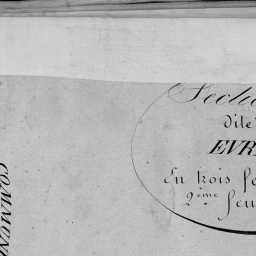 Section
dite
EVR
En trois fe
2ème feu
COMMUN